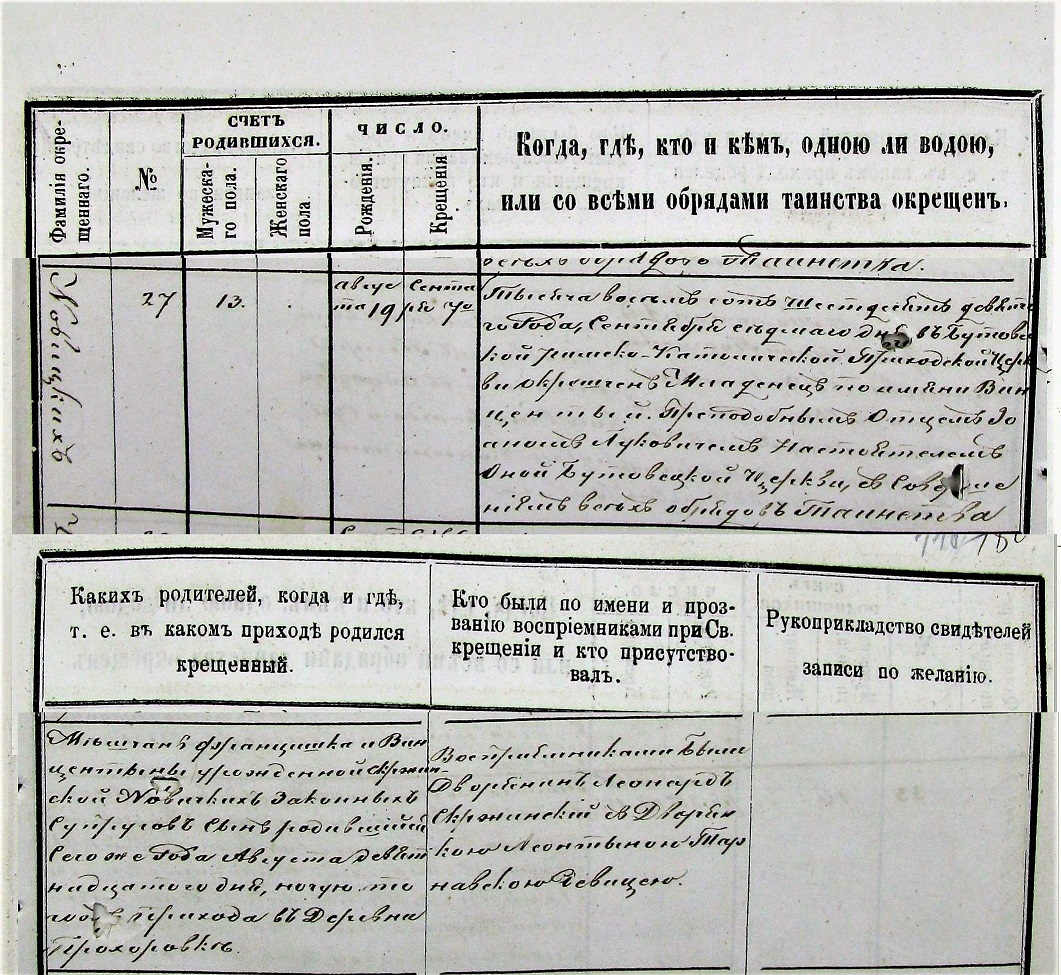 Фамилія окре-
щеннаго.
№
СЧЕТЪ
РОДИВШИХСЯ.
Мужеска-
го пола.
Женскаго
пола.
ЧИСЛО.
Рожденія.
Крещенія
Когда, гдѣ, кто и кѣмъ, одною ли водою,
или со всѣми обрядами таинства окрещенъ.
всѣхъ обрядовъ Таинства.
Новицкихъ
27
13.
Авгус
та 19
Сентя
бря 7го
Тысяча восемь сотъ шестдесятъ девято
го Года, Сентября седмаго дня въ Бутове
кой Римско-Католической Приходской Церк
ви окрещенъ Младенецъ по имени Вин
центый. Преподобнымъ Отцемъ Іо
аномъ Луковичемъ Настоятелемъ
Оной Бутовецкой Церкви, съ
ніемъ всѣхъ обрядовъ Таинства
Какихъ родителей, когда и гдѣ,
т. е. въ какомъ приходѣ родился
крещенный.
Кто были по имени и проз-
ванію воспріемниками при Св.
крещеніи и кто присутство-
валъ.
Рукоприкладство свидѣтелей
записи по желанію.
Мѣщанъ Францишка и Вин
центыны урожденной Скржин-
ской Новицкихъ Законныхъ
Супруговъ Сынъ родившійся
Сего же Года Августа девят
надцатого дня, ночую то
прихода въ Деревни
Прохоровкѣ.
Воспріемниками были
Дворянинъ Леонардъ
Скржинскій съ Дворян
кою Леонтыною Тар
навскою Девицею.